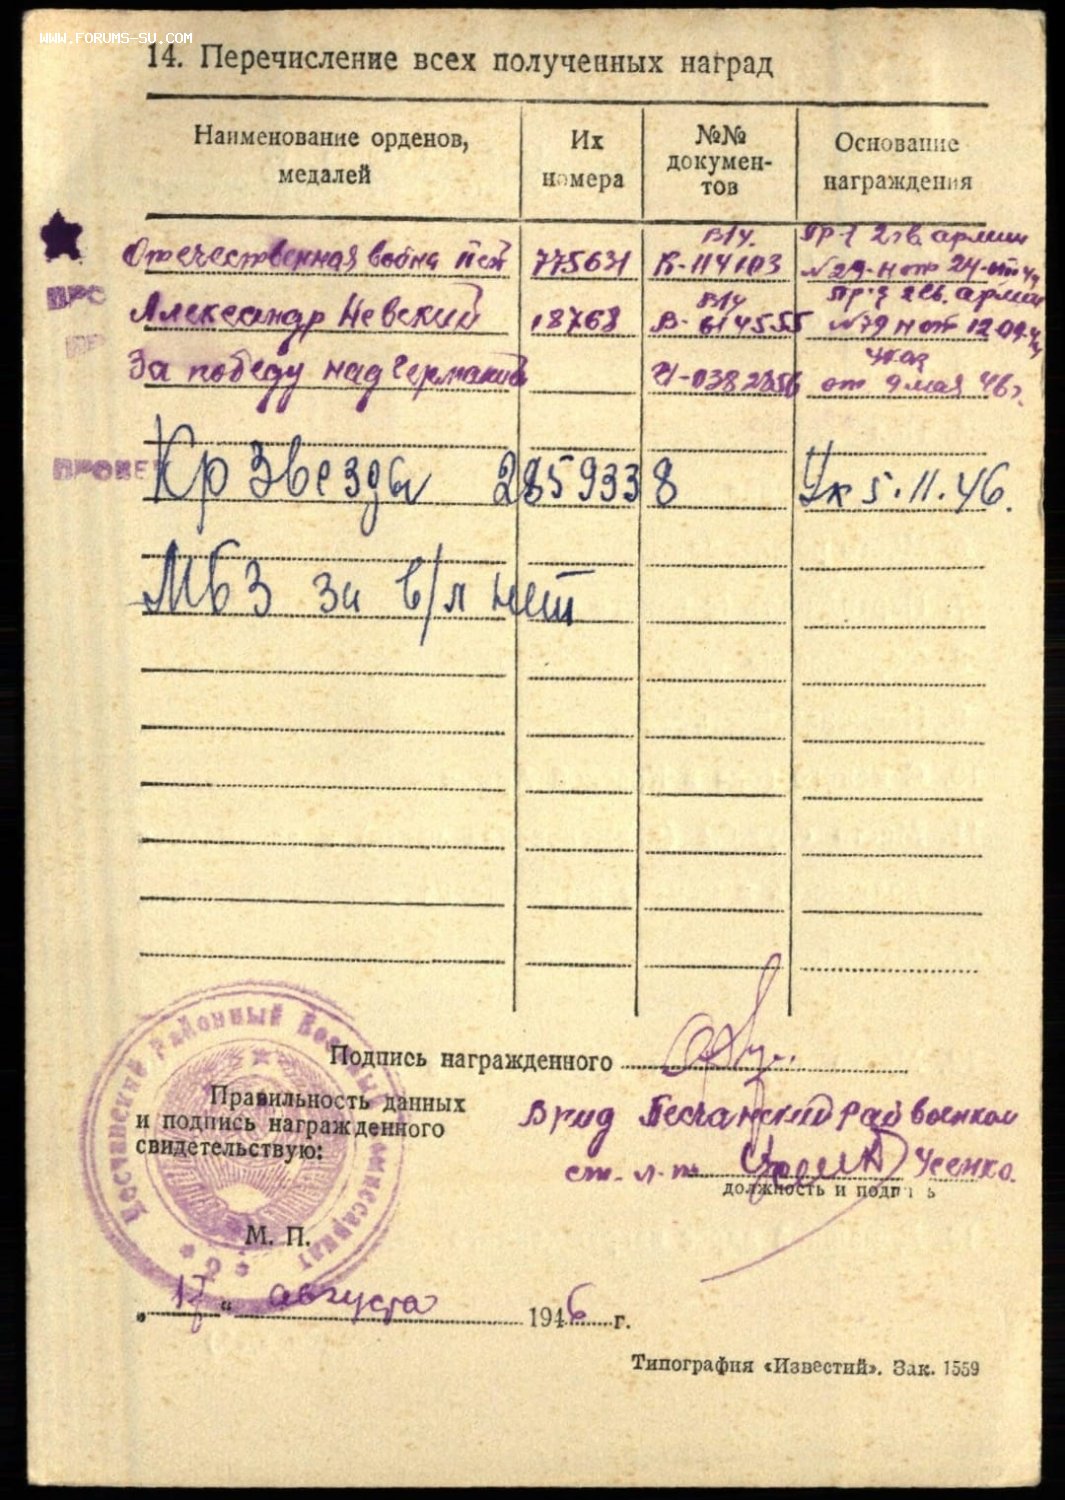 WWW.FORUMS-SU.COM
14. Перечисление всех полученных наград
Наименование орденов, медалей
Их номера
№№ документов
Основание награждения
Отечественная война 775631 В-114103 Пр-з 2 гв. армии №29-н от 24-
Александр Невский 18768 В-614555 Пр-з 2 гв. армии №79 н от 12.04.
За победу над Германией от 9 мая 46г.
Кр Звезды 2859338 Ук 5.11.46.
МБЗ за в/л нет
ПРОВЕ
Подпись награжденного
Правильность данных
и подпись награжденного
свидетельствую:
Врид Песчанский Райвоенком
ст. л-т Усенко.
должность и подпись
М. П.
Песчанский Районный Военный Комиссариат
„17“ августа 1946 г.
Типография «Известий». Зак. 1559